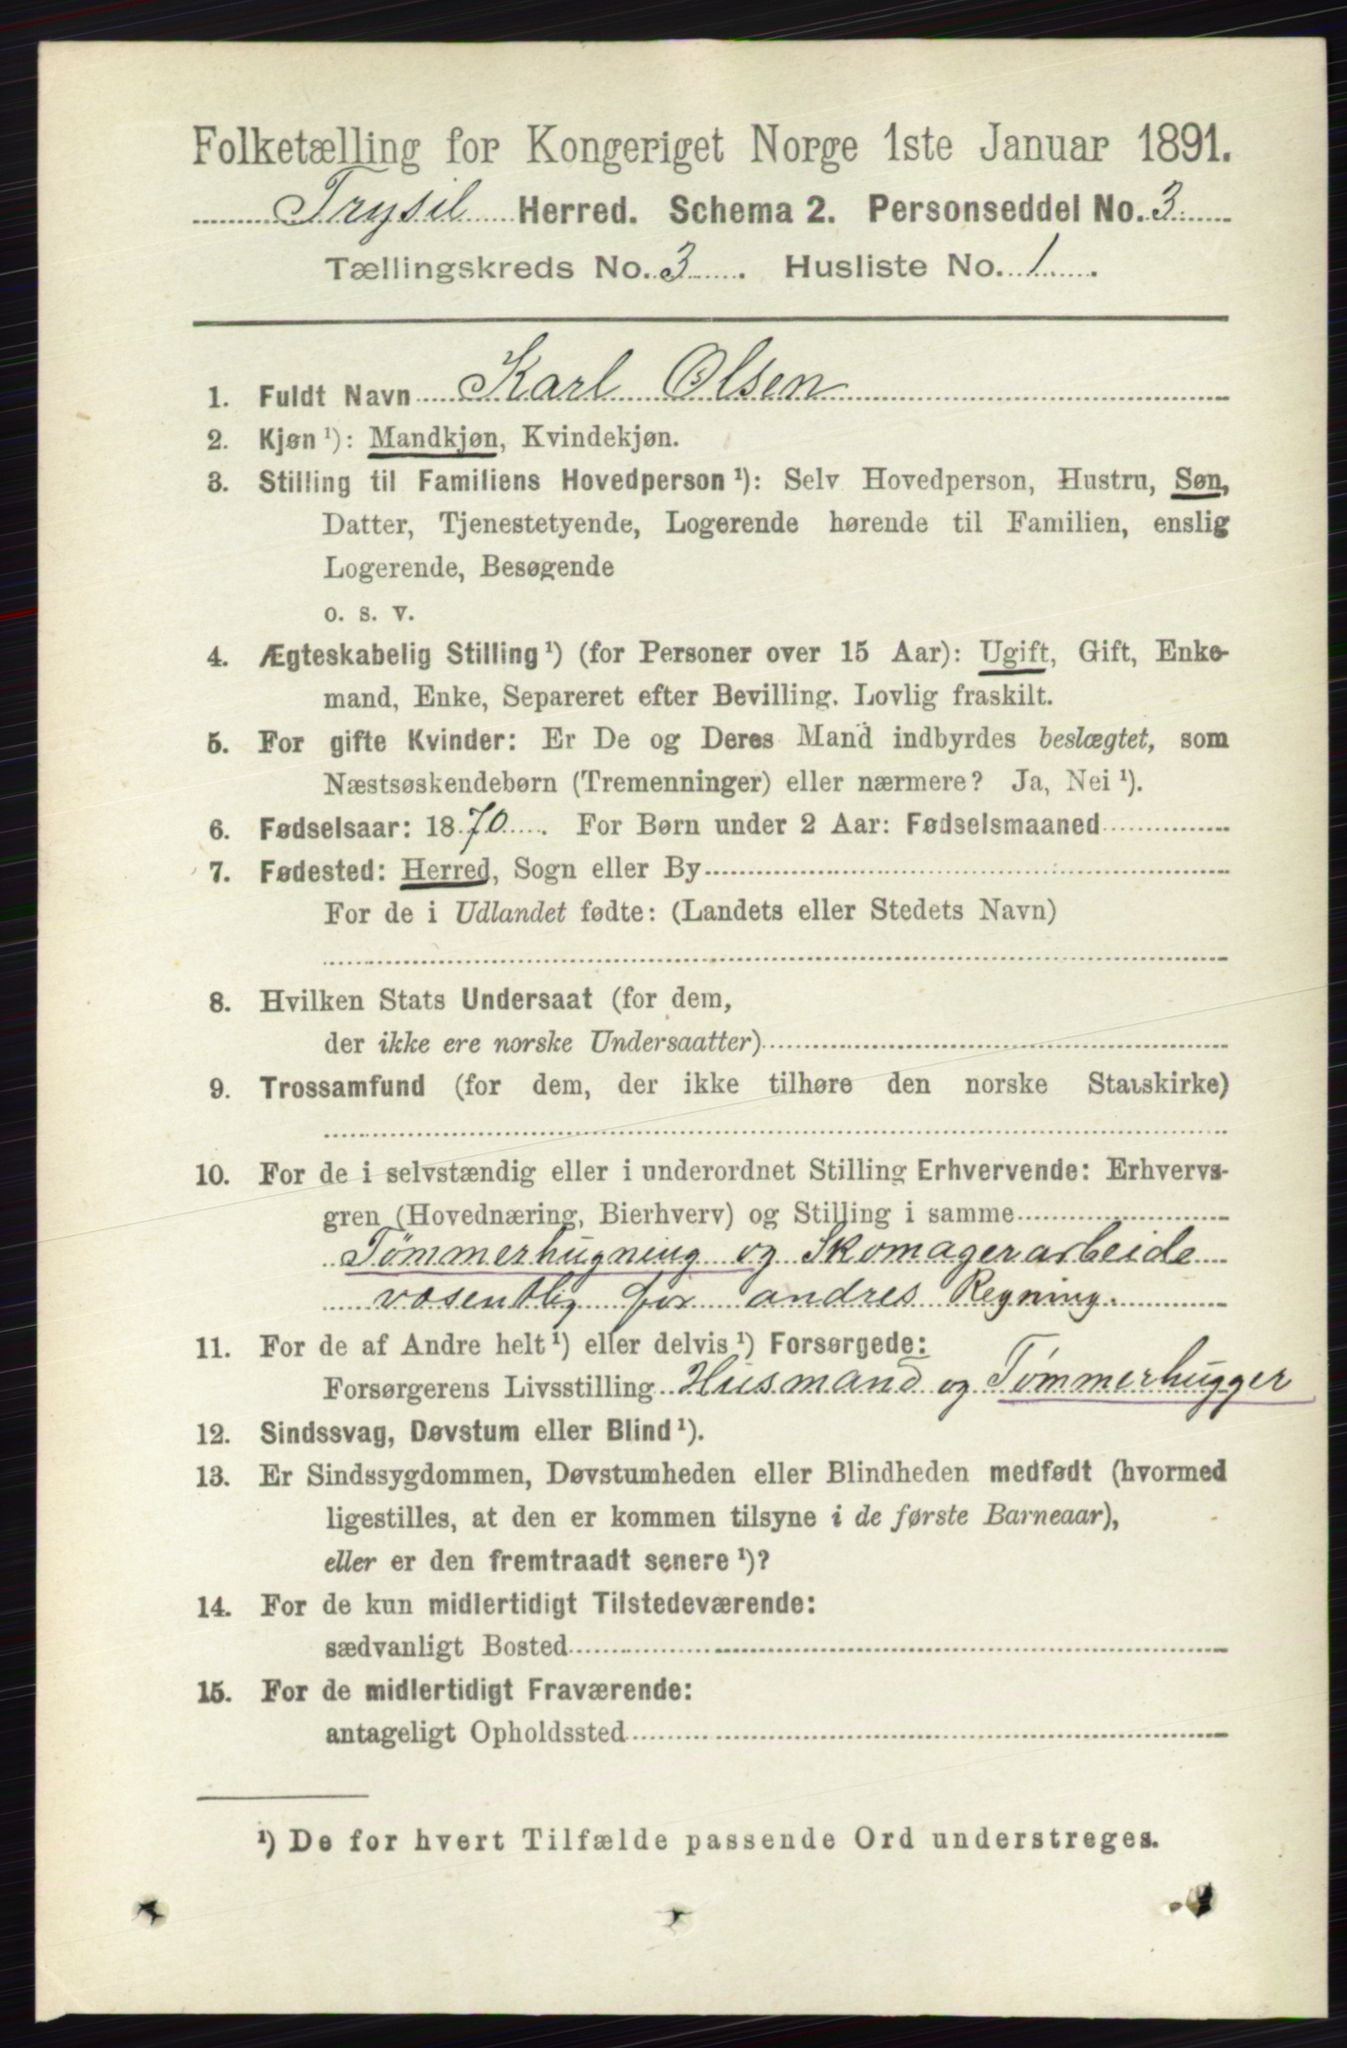 Folketælling for Kongeriget Norge 1ste Januar 1891.
Trysil Herred. Schema 2. Personseddel No. 3
Tællingskreds No. 3. Husliste No. 1.
1. Fuldt Navn Karl Olsen
2. Kjøn ¹): Mandkjøn, Kvindekjøn.
3. Stilling til Familiens Hovedperson ¹): Selv Hovedperson, Hustru, Søn,
Datter, Tjenestetyende, Logerende hørende til Familien, enslig
Logerende, Besøgende
o. s. v.
4. Ægteskabelig Stilling ¹) (for Personer over 15 Aar): Ugift, Gift, Enke-
mand, Enke, Separeret efter Bevilling. Lovlig fraskilt.
5. For gifte Kvinder: Er De og Deres Mand indbyrdes beslægtet, som
Næstsøskendebørn (Tremenninger) eller nærmere? Ja, Nei ¹).
6. Fødselsaar: 1870. For Børn under 2 Aar: Fødselsmaaned
7. Fødested: Herred, Sogn eller By
For de i Udlandet fødte: (Landets eller Stedets Navn)
8. Hvilken Stats Undersaat (for dem,
der ikke ere norske Undersaatter)
9. Trossamfund (for dem, der ikke tilhøre den norske Statskirke)
10. For de i selvstændig eller i underordnet Stilling Erhvervende: Erhvervs-
gren (Hovednæring, Bierhverv) og Stilling i samme
Tømmerhugning og Skomagerarbeide
væsentlig for andres Regning.
11. For de af Andre helt ¹) eller delvis ¹) Forsørgede:
Forsørgerens Livsstilling Husmand og Tømmerhugger
12. Sindssvag, Døvstum eller Blind ¹).
13. Er Sindssygdommen, Døvstumheden eller Blindheden medfødt (hvormed
ligestilles, at den er kommen tilsyne i de første Barneaar),
eller er den fremtraadt senere ¹)?
14. For de kun midlertidigt Tilstedeværende:
sædvanligt Bosted
15. For de midlertidigt Fraværende:
antageligt Opholdssted
¹) De for hvert Tilfælde passende Ord understreges.